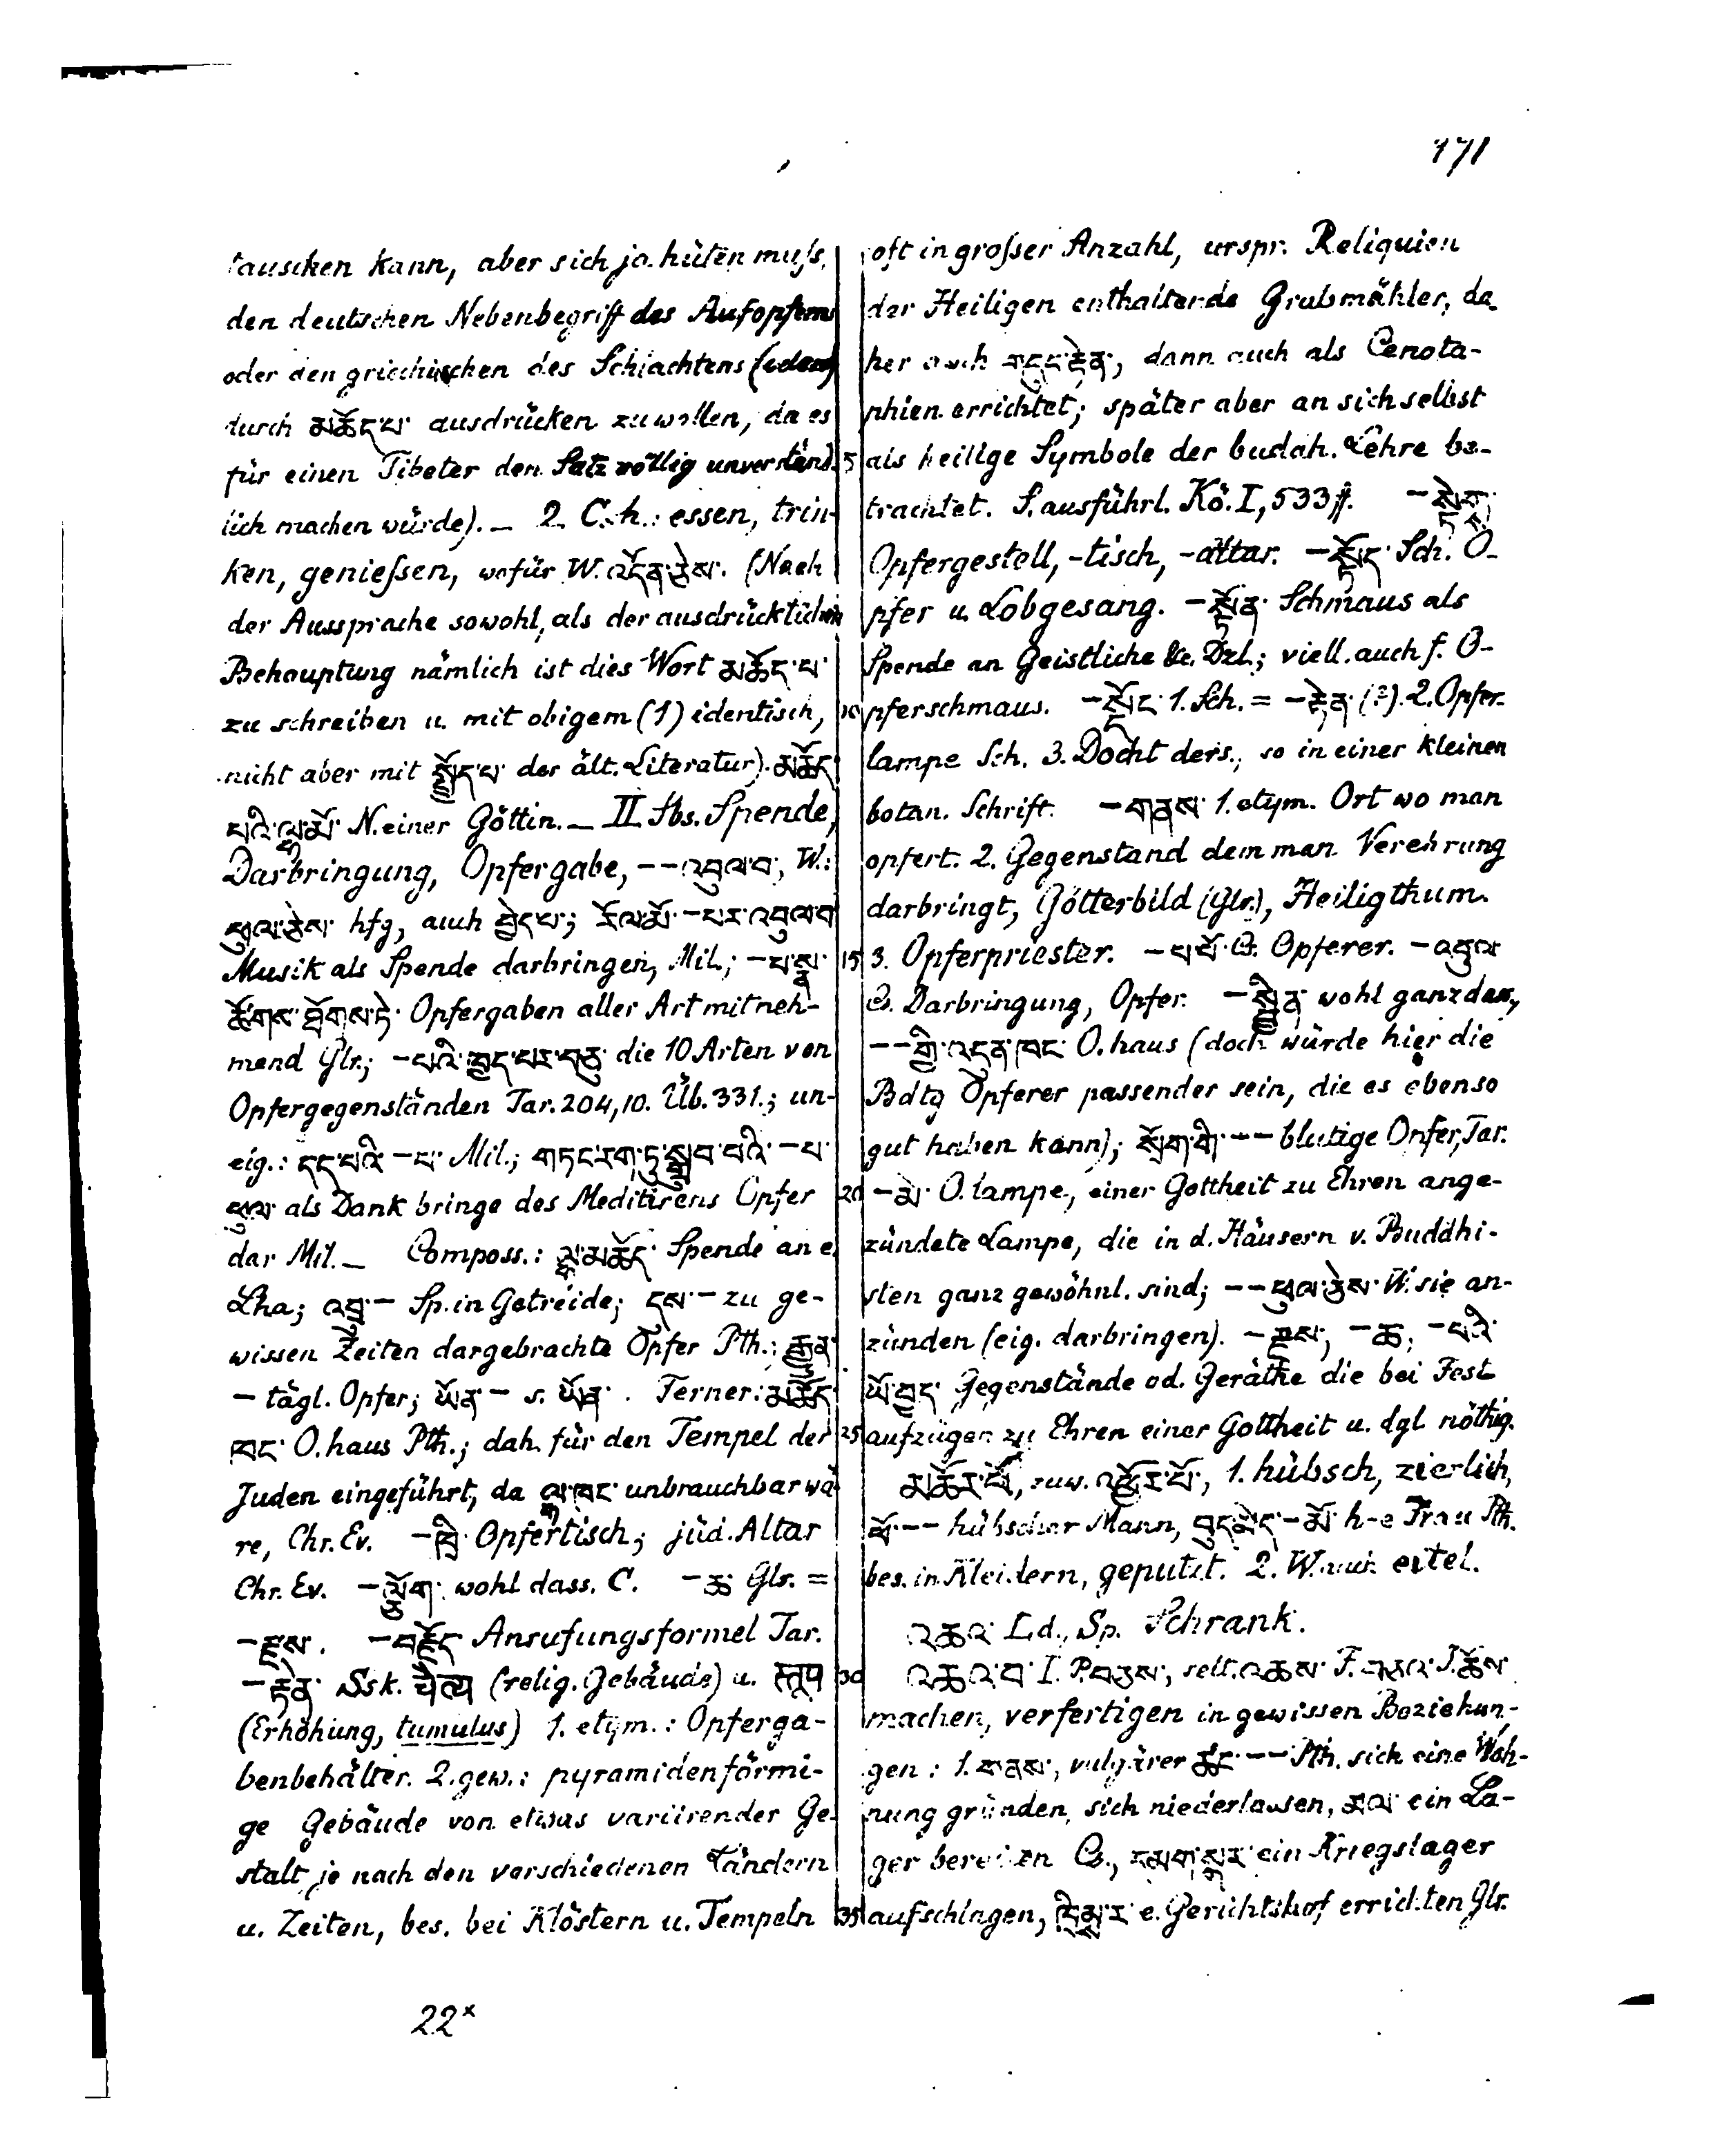 171
tauschen kann, aber sich ja hüten muſs,
den deutschen Nebenbegriff des Aufopferns
oder den griechischen des Schlachtens
durch མཆོད་པ་ ausdrücken zu wollen, da es
für einen Tibeter den Satz völlig unverständ-
lich machen würde). — 2. C. h.: essen, trin-
ken, genieſsen, wofür W. འདོན་ཅེས་. (Nach
der Aussprache sowohl, als der ausdrücklichen
Behauptung nämlich ist dies Wort མཆོད་པ་
zu schreiben u. mit obigem (1) identisch,
nicht aber mit སྤྱོད་པ་ der ält. Literatur). མཆོད་
པའི་ལྷ་མོ་ N. einer Göttin. — II Sbs. Spende,
Darbringung, Opfergabe, — — འབུལ་བ་, W.:
ཕུལ་ཅེས་ hfg, auch བྱེད་པ་; རོལ་མོ་ — པར་འབུལ་བ་
Musik als Spende darbringen, Mil.; — པ་སྣ་
ཚོགས་ཐོགས་ཏེ་ Opfergaben aller Art mitneh-
mend Glr.; — པའི་བྱད་པར་བཅུ་ die 10 Arten von
Opfergegenständen Tar. 204,10. Üb. 331.; un-
eig.: དད་པའི་ — པ་ Mil.; གཏང་རག་ཏུ་སྒྲུབ་པའི་ — པ་
ཕུལ་ als Dank bringe des Meditirens Opfer
dar Mil. — Composs.: ལྷ་མཆོད་ Spende an e.
Lha; འབྲུ་ — Sp. in Getreide; དུས་ — zu ge-
wissen Zeiten dargebrachte Opfer Pth.; རྒྱུན་
— tägl. Opfer; ཡོན་ — s. ཡོན་. Ferner: མཆོད་
ཁང་ O. haus Pth.; dah. für den Tempel der
Juden eingeführt, da ལྷ་ཁང་ unbrauchbar wä-
re, Chr. Ev. — ཁྲི་ Opfertisch; jüd. Altar
Chr. Ev. — ལྕོག་ wohl dass. C. — ཆ་ Glr. =
— རྫས་. — བརྗོད་ Anrufungsformel Tar.
— རྟེན་ Ssk. चैत्य (relig. Gebäude) u. स्तूप
(Erhöhung, tumulus) 1. etym.: Opferga-
benbehälter. 2. gew.: pyramidenförmi-
ge Gebäude von etwas variirender Ge-
stalt je nach den verschiedenen Ländern
u. Zeiten, bes. bei Klöstern u. Tempeln
oft in groſser Anzahl, urspr. Reliquien
der Heiligen enthaltende Grabmähler, da
her auch གདུང་རྟེན་, dann auch als Cenota-
phien errichtet; später aber an sich selbst
5 als heilige Symbole der buddh. Lehre be-
trachtet. S. ausführl. Kö. I, 533 ff. — སྟེགས་
Opfergestell, -tisch, -altar. — སྟོད་ Sch. O-
pfer u. Lobgesang. — སྟོན་ Schmaus als
Spende an Geistliche &c. Dzl.; viell. auch f. O-
10 pferschmaus. — སྡོང་ 1. Sch. = — རྟེན་ (?). 2. Opfer-
lampe Sch. 3. Docht ders., so in einer kleinen
botan. Schrift. — གནས་ 1. etym. Ort wo man
opfert. 2. Gegenstand dem man Verehrung
darbringt, Götterbild (Glr.), Heiligthum.
15 3. Opferpriester. — པ་པོ་ Cs. Opferer. — འབུལ་
Cs. Darbringung, Opfer. — སྦྱིན་ wohl ganz dass.,
— — གྱི་འདུན་ཁང་ O. haus (doch würde hier die
Bdtg Opferer passender sein, die es ebenso
gut haben kann); སྲོག་གི་ — — blutige Opfer, Tar.
20 — མེ་ O. lampe, einer Gottheit zu Ehren ange-
zündete Lampe, die in d. Häusern v. Buddhi-
sten ganz gewöhnl. sind; — — ཕུལ་ཅེས་ W. sie an-
zünden (eig. darbringen). — རྫས་, — ཆ་, — པའི་
ཡོ་བྱད་ Gegenstände od. Geräthe die bei Fest
25 aufzügen zu Ehren einer Gottheit u. dgl. nöthig.
མཆོར་པོ་, zuw. འཕྱོར་པོ་, 1. hübsch, zierlich,
ཕོ་ — — hübscher Mann, བུད་མེད་ — མོ་ h-e Frau Pth.
bes. in Kleidern, geputzt. 2. W. auch eitel.
འཆའ་ Ld., Sp. Schrank.
30 འཆའ་བ་ I. P. བཅས་, selt. འཆས་ F. བཅའ་ I. ཆོས་
machen, verfertigen in gewissen Beziehun-
gen: 1. གནས་, vulgärer ཚང་ — — Pth. sich eine Woh-
nung gründen, sich niederlassen, མལ་ ein La-
ger bereiten Cs., དམག་སྒར་ ein Kriegslager
35 aufschlagen, ཁྲིམ་ར་ e. Gerichtshof errichten Glr.
22*